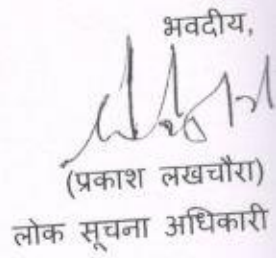 भवदीय,
(प्रकाश लखचौरा)
लोक सूचना अधिकारी